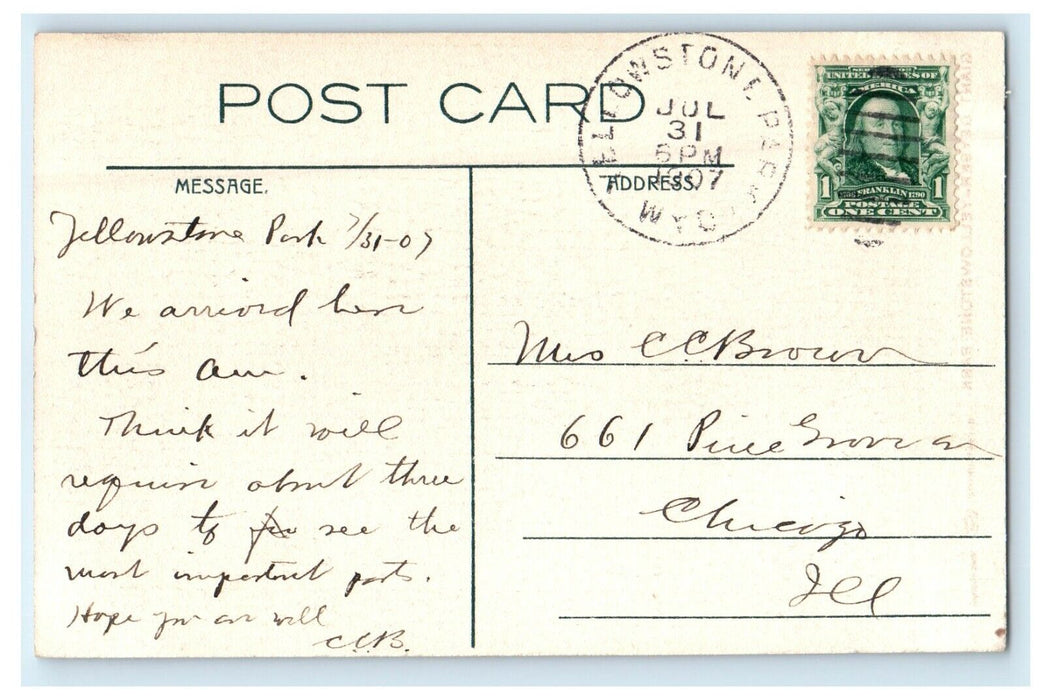 POST CARD
YELLOWSTONE PARK
JUL
31
6 PM
1907
WYO.
SERIES 1902
UNITED STATES OF
AMERICA
1
1
1706 FRANKLIN 1790
POSTAGE
ONE CENT
MESSAGE.
ADDRESS.
Yellowstone Park 7/31-07
We arrived here
this am.
Think it will
require about three
days to see the
most important parts.
Hope you are well
C.C.B.
Mrs C C Brown
661 Pine Grove av
Chicago
Ill
YELLOWSTONE PARK